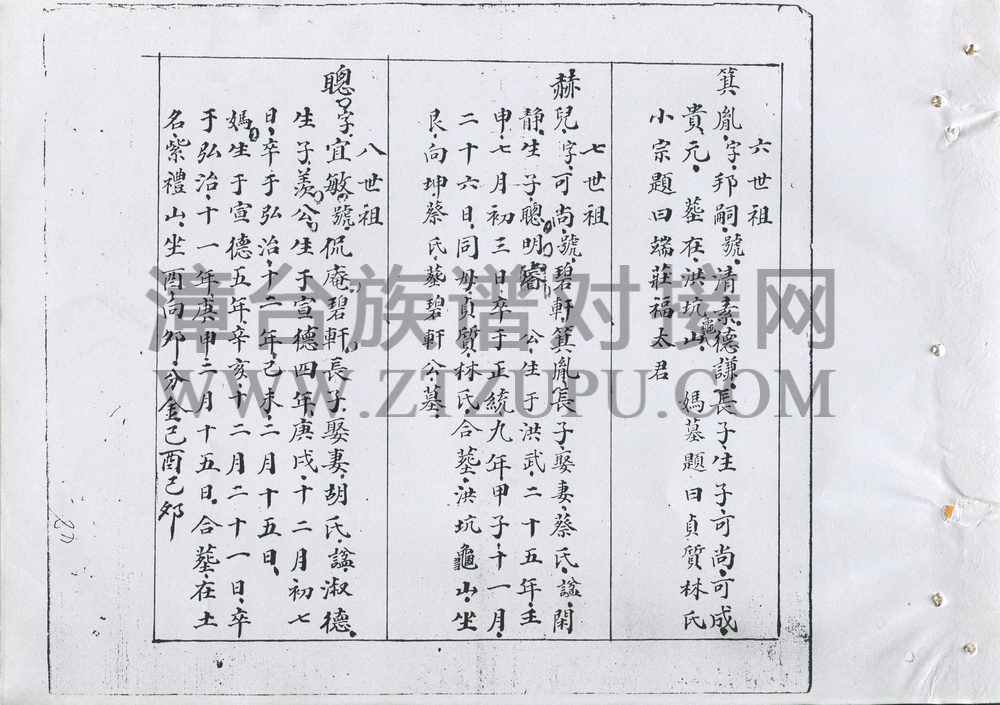 六世祖
箕胤字邦嗣號清素德謙長子生子可尚可成
貴元 墓在洪坑龜山 媽墓題曰貞質林氏
小宗題曰端莊福太君
七世祖
赫兒字可尚號碧軒箕胤長子娶妻蔡氏諡閑
静生子聰明睿 公生于洪武二十五年壬
申七月初三日卒于正統九年甲子十一月
二十六日同母貞質林氏合墓洪坑龜山坐
艮向坤蔡氏墓碧軒公墓
八世祖
聰字宜敏號侃庵碧軒長子娶妻胡氏諡淑德
生子羨公生于宣德四年庚戌十二月初七
日卒于弘治十二年己未二月十五日
媽生于宣德五年辛亥十二月二十一日卒
于弘治十一年庚申二月十五日合墓在土
名紫禮山坐酉向夘分金己酉己夘
漳台族谱对接网
WWW.ZTZUPU.COM